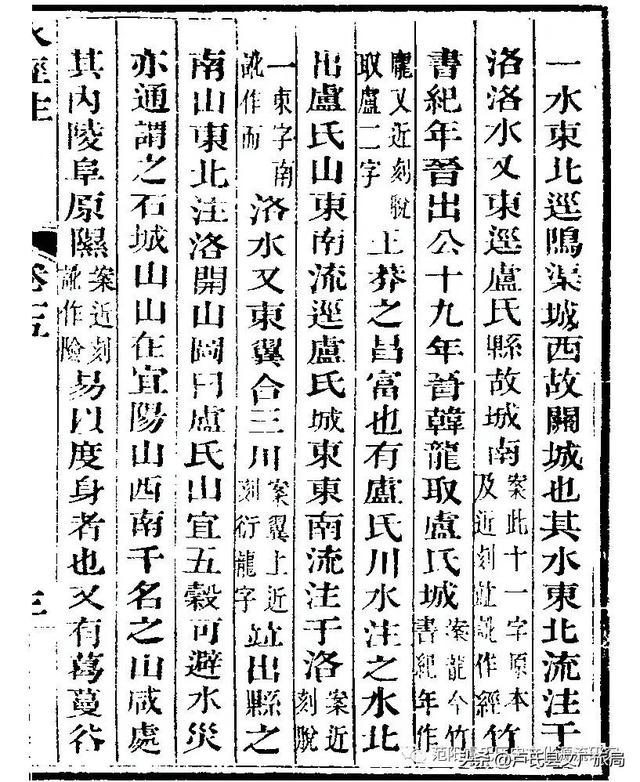 一水東北逕鴟渠城西故關城也其水東北流注于
洛洛水又東逕盧氏縣故城南案此十一字原本及近刻竝訛作經竹
書紀年晉出公十九年晉韓龍取盧氏城案龍今竹書紀年作
龎又近刻脫取盧二字王莽之昌富也有盧氏川水注之水北
出盧氏山東南流逕盧氏城東東南流注于洛案近刻脫
一東字南訛作而洛水又東翼合三川案翼上近刻衍龍字竝出縣之
南山東北注洛開山圖曰盧氏山宜五穀可避水災
亦通謂之石城山山在宜陽山西南千名之山咸處
其内陵阜原隰案近刻訛作險易以度身者也又有葛蔓谷
水經注
卷十五
三
头条@卢氏县文广旅局